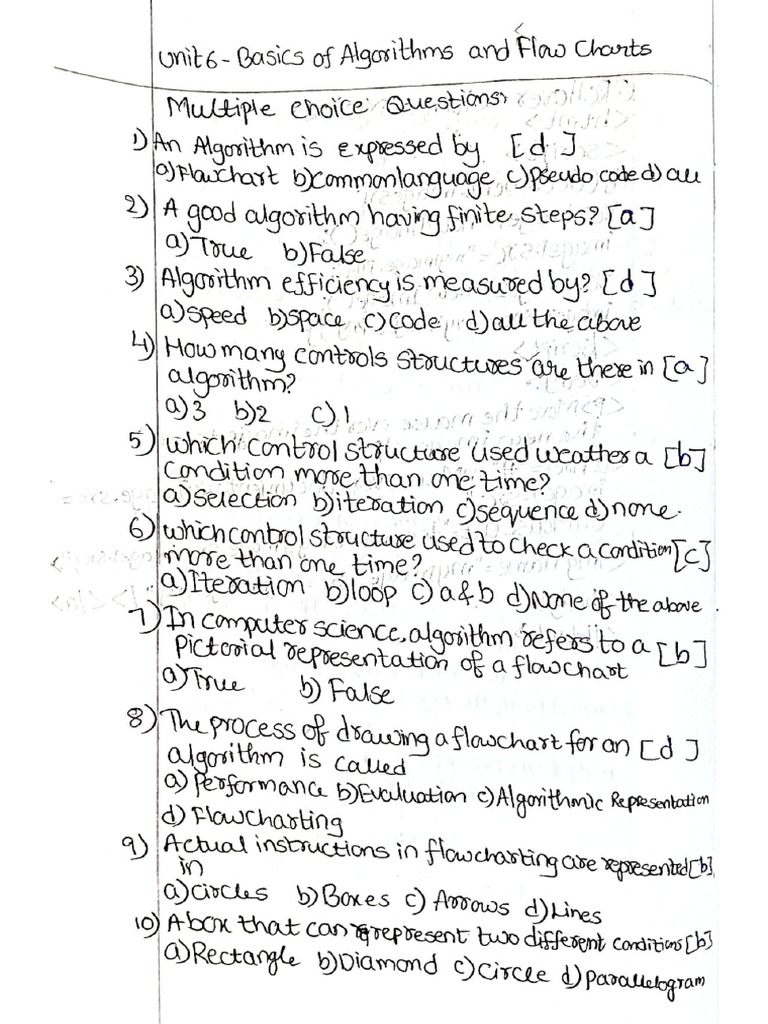 Unit 6 - Basics of Algorithms and Flow Charts
Multiple choice Questions:
1) An Algorithm is expressed by [d]
a) Flowchart b) Common language c) Pseudo code d) all
2) A good algorithm having finite steps? [a]
a) True b) False
3) Algorithm efficiency is measured by? [d]
a) speed b) space c) code d) all the above
4) How many controls structures are there in [a]
algorithm?
a) 3 b) 2 c) 1
5) which control structure used weather a [b]
condition more than one time?
a) selection b) iteration c) sequence d) none.
6) which control structure used to check a condition [c]
more than one time?
a) Iteration b) loop c) a & b d) None if the above.
7) In computer science, algorithm refers to a [b]
Pictorial representation of a flowchart
a) True b) False
8) The process of drawing a flowchart for an [d]
algorithm is called
a) Performance b) Evaluation c) Algorithmic Representation
d) Flowcharting
9) Actual instructions in flowcharting are represented [b]
in
a) circles b) Boxes c) Arrows d) Lines
10) A box that can represent two different conditions [b]
a) Rectangle b) Diamond c) Circle d) parallelogram